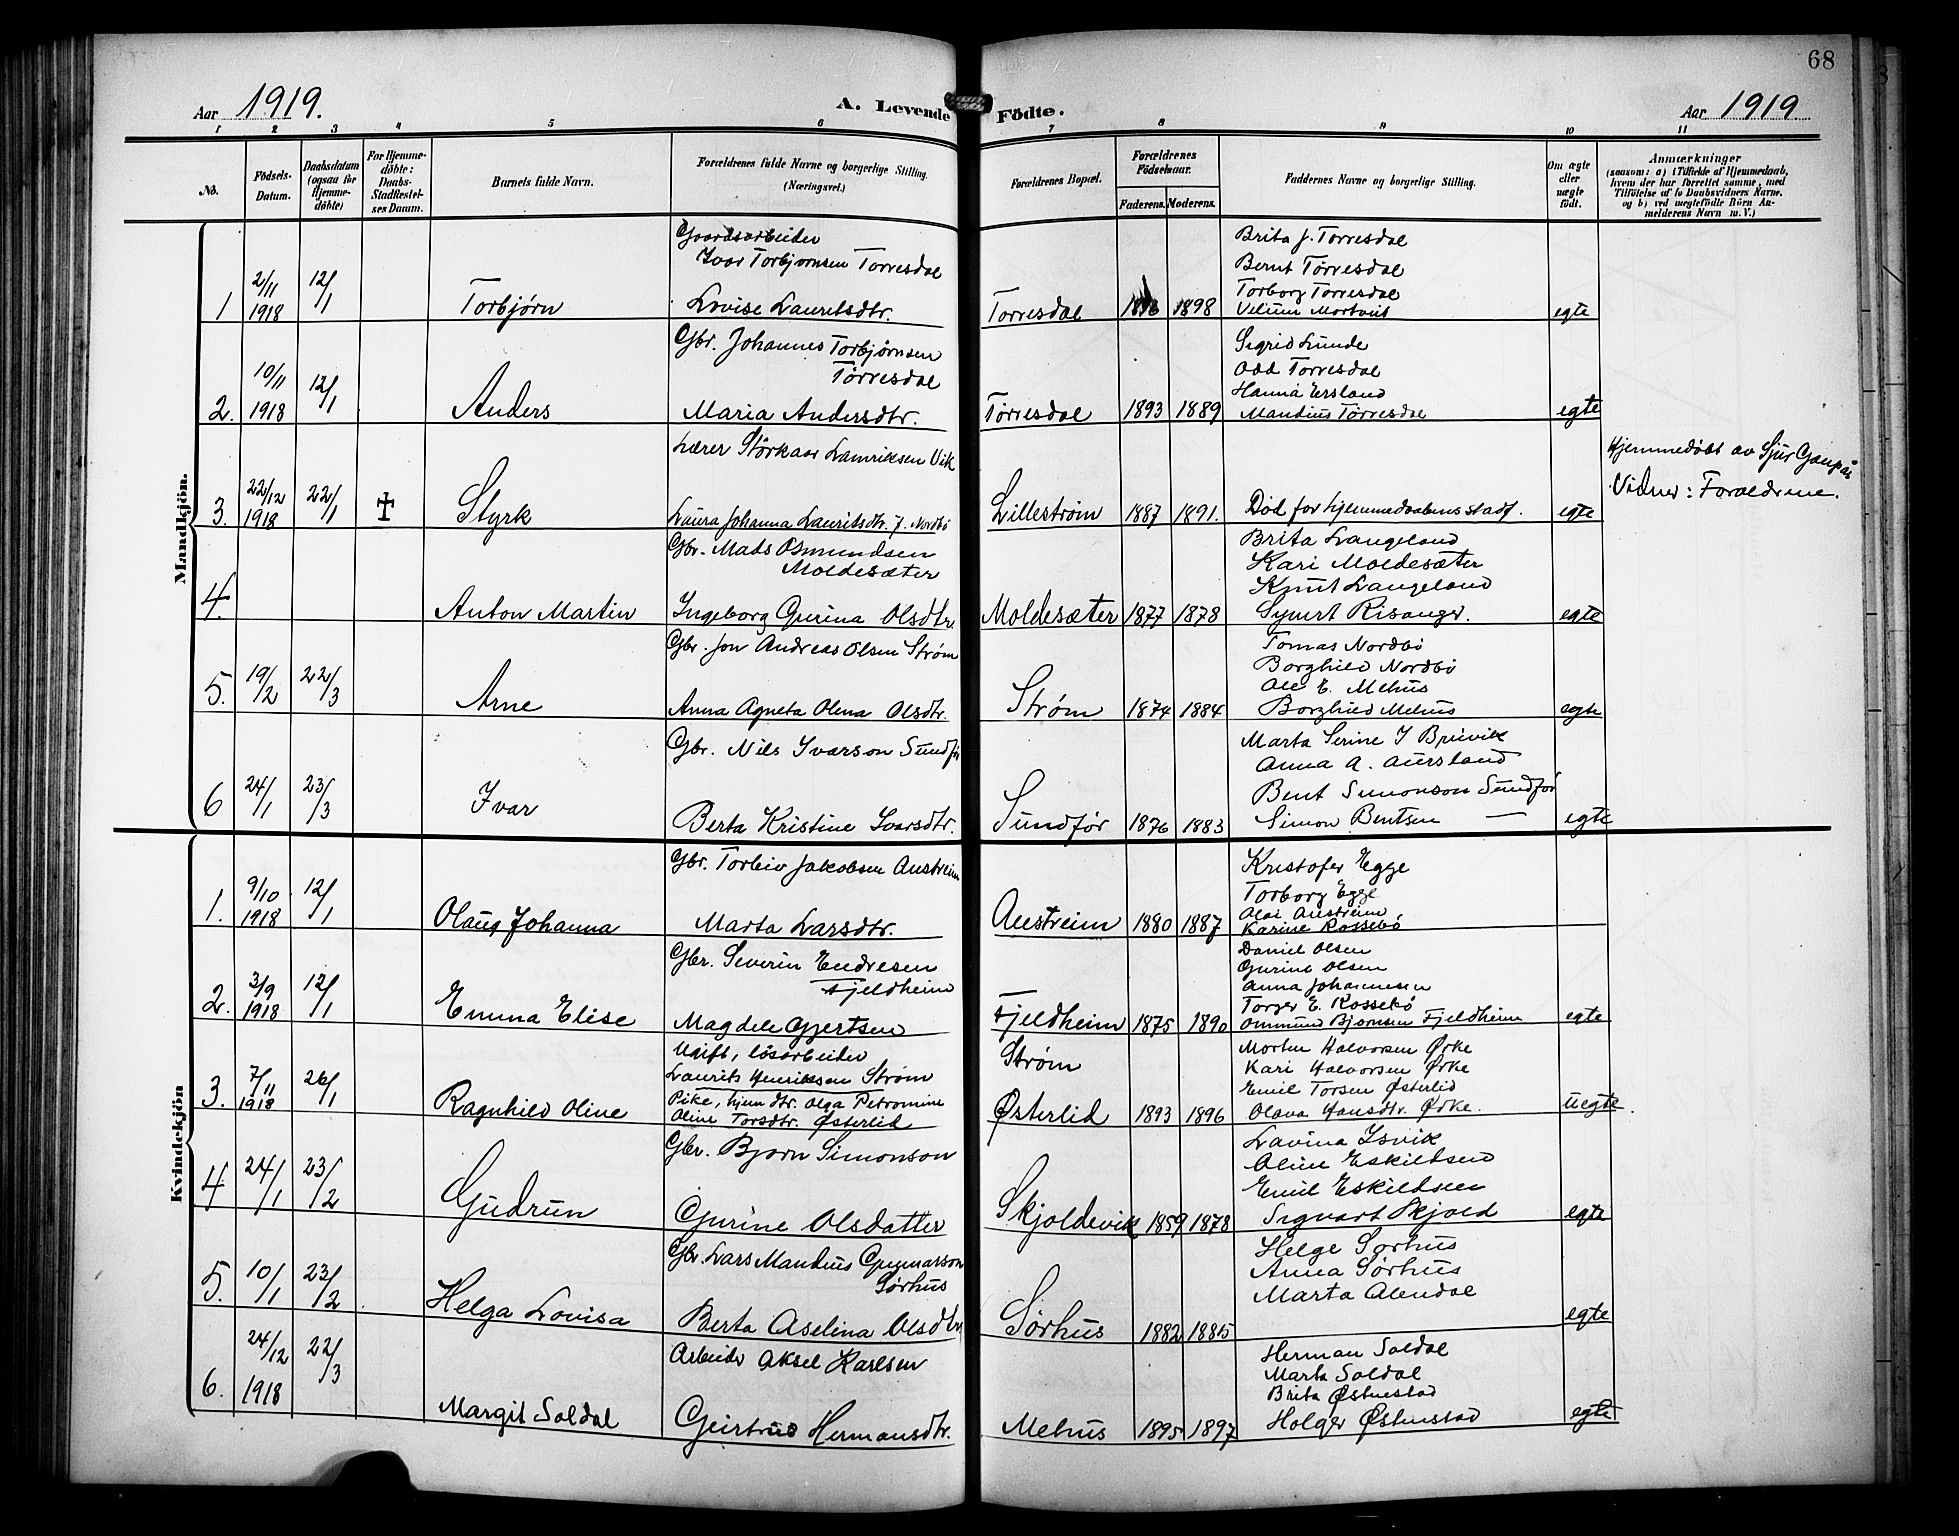 68
Aar 1919.
A. Levende Födte.
Aar 1919
1 2 3 4 5 6 7 8 9 10 11
No.
Födsels-Datum.
Daabsdatum (ogsaa for Hjemme-döbte)
For Hjemme-döbte: Daabs-Stadfestel-ses Datum.
Barnets fulde Navn.
Forældrenes fulde Navne og borgerlige Stilling. (Næringsvei.)
Forældrenes Bopæl.
Forældrenes Födselsaar.
Faderens. Moderens.
Faddernes Navne og borgerlige Stilling.
Om ægte eller uægte födt.
Anmærkninger
(saasom: a) i Tilfælde af Hjemmedaab, hvem der har forrettet samme, med Tilföielse af to Daabsvidners Navne, og b) ved uægtefödte Börn An-melderens Navn m. V.)
Mandkjön.
1 2/11 1918 12/1 Torbjørn
Gaardsarbeider
Ivar Torbjørnsen Tørresdal
Lovise Lauritsdtr.
Tørresdal 1898
Brita J. Tørresdal
Bernt Tørresdal
Torborg Tørresdal
egte
2. 10/11 1918 12/1 Anders
Gbr. Johannes Torbjørnsen
Tørresdal
Maria Andersdtr.
Tørresdal 1893 1889
Sigrid Lunde
Odd Tørresdal
Hanna Ersland
Mandius Tørresdal
egte
3. 22/12 1918 22/1 Styrk
Lærer Störkaar Lamriksen Vik
Laura Johanna Lauritsdtr. f. Nordbö
Lilleström 1887 1891.
Död før hjemmedaabens stadf.
egte
Hjemmedöbt av Sjur Gaupås
Vidner: Forældrene.
4. Anton Martin
Gbr. Mads Osmundsen
Moldesæter
Ingeborg Gurina Olsdtr.
Moldesæter 1877 1878
Brita Langeland
Kari Moldesæter
Knut Langeland
Sjurt Risanger.
egte
5. 19/2 22/3 Arne
Gbr. Jon Andreas Olsen Strøm
Anna Agneta Olena Olsdtr.
Strøm 1874 1884
Tomas Nordbö
Borghild Nordbö
Ole E. Mehus
Borghild Mehus
egte
6 24/1 23/3 Ivar
Gbr. Nils Ivarson Sundför
Berta Kristine Ivarsdtr.
Sundför 1876 1883
Marta Serine I Breivik
Anna A. Aursland
Bent Simonson Sundför
Simon Bentsen —
egte
Kvindekjön
1. 9/10 1918 12/1 Olaug Johanna
Gbr. Torbeiv Jakobsen Austreim
Marta Larsdtr.
Austreim 1880 1887
Kristofer Egge
Torborg Egge
Olai Austreim
Karine Rossebö
2. 3/9 1918 12/1 Emma Elise
Gbr. Severin Endresen
Fjeldheim
Magdele Gjertsen
Fjeldheim 1875 1890
Daniel Olsen
Gurine Olsen
Anna Johannesen
Torger E. Rossebö
Ommund Bjørnsen Fjeldheim
egte
3. 7/11 1918 26/1 Ragnhild Oline
Ugift, lösarbeider
Laurits Henriksen Strøm
Pike, hjem dtr. Olga Petromine
Oline Torsdtr. Østerlid
Strøm
Østerlid 1893 1896
Morten Halvorsen Ørke
Kari Halvorsen Ørke
Emil Torsen Østerlid
Olava Hansdtr. Ørke.
uegte.
4. 24/1 23/2 Gudrun
Gbr. Bjørn Simonson
Gurine Olsdatter
Skjoldevik 1859 1878
Lavina Isvik
Oline Eskildsen
Emil Eskildsen
Sigvart Skjold
egte
5. 10/1 23/2 Helga Lovisa
Gbr. Lars Mandius Gunnarson
Sörhus
Berta Aselina Olsdtr.
Sörhus 1882 1885
Helge Sörhus
Anna Sörhus
Marta Alendal
egte
6. 24/12 1918 22/3 Margit Soldal
Arbeider Aksel Karlsen
Geirtrud Hermansdtr.
Mehus 1895 1897
Herman Soldal
Marta Soldal
Brita Østenstad
Holger Østenstad
egte